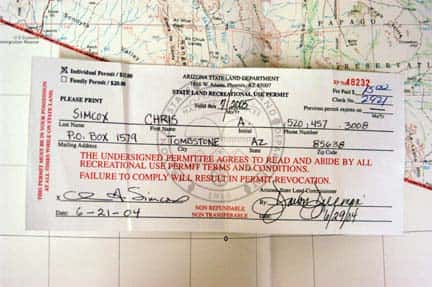 PAPAGO
Individual Permit / $15.00
Family Permit / $20.00
ARIZONA STATE LAND DEPARTMENT
1616 W. Adams, Phoenix, AZ 85007
STATE LAND RECREATIONAL USE PERMIT
RP No. 48232
Fee Paid $
Check No. 2921
PLEASE PRINT
Valid thru 7/2005
Previous permit expires on
SIMCOX CHRIS A. 520, 457 - 3008
Last Name First Name Initial Phone Number
P.O. BOX 1579 TOMBSTONE AZ 85638
Mailing Address City State Zip Code
THIS PERMIT MUST BE IN YOUR POSSESSION
AT ALL TIMES WHEN ON STATE LAND.
THE UNDERSIGNED PERMITTEE AGREES TO READ AND ABIDE BY ALL
RECREATIONAL USE PERMIT TERMS AND CONDITIONS.
FAILURE TO COMPLY WILL RESULT IN PERMIT REVOCATION.
A. Simcox
Arizona State Land Commissioner
By:
Date: 6-21-04
NON REFUNDABLE
NON TRANSFERABLE
6/29/04